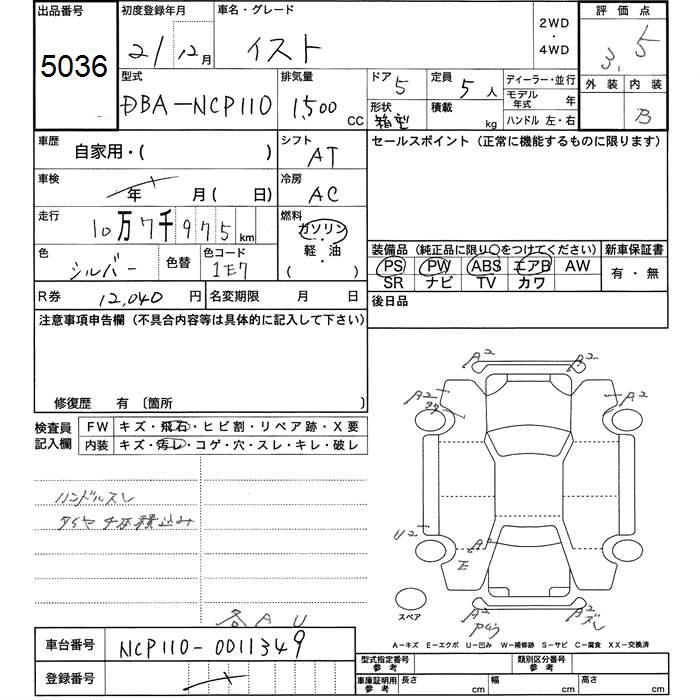 出品番号 初度登録年月 車名・グレード 2WD・4WD 評価点
5036 21 12月 イスト 3.5
外装 内装
B
型式 排気量 ドア 5 定員 5人 ディーラー・並行
DBA-NCP110 1,500 CC 形状 箱型 積載 kg モデル年式 年
ハンドル 左・右
車歴 自家用・( ) シフト AT セールスポイント (正常に機能するものに限ります)
車検 年 月( 日) 冷房 AC
走行 10万7千975km 燃料 ガソリン・軽油 ( )
色 シルバー 色替 色コード 1E7
装備品 (純正品に限り○をつけてください) 新車保証書
PS PW ABS エアB AW 有・無
SR ナビ TV カワ
R券 12,040円 名変期限 月 日 後日品
注意事項申告欄 (不具合内容等は具体的に記入して下さい)
修復歴 有 〔箇所
検査員記入欄 FW キズ・飛石・ヒビ割・リペア跡・X要
内装 キズ・汚レ・コゲ・穴・スレ・キレ・破レ
ハンドルスレ
タイヤ 4本積込み
各 A U
A2 A2
A2 A2
U2
A2
E
A2 A2
スペア
A-キズ E-エクボ U-凹み W-補修跡 S-サビ C-腐食 XX-交換済
車台番号 NCP110-0011349
登録番号
型式指定番号 参考 類別区分番号 参考
車庫証明用 参考 長さ cm 幅 cm 高さ cm